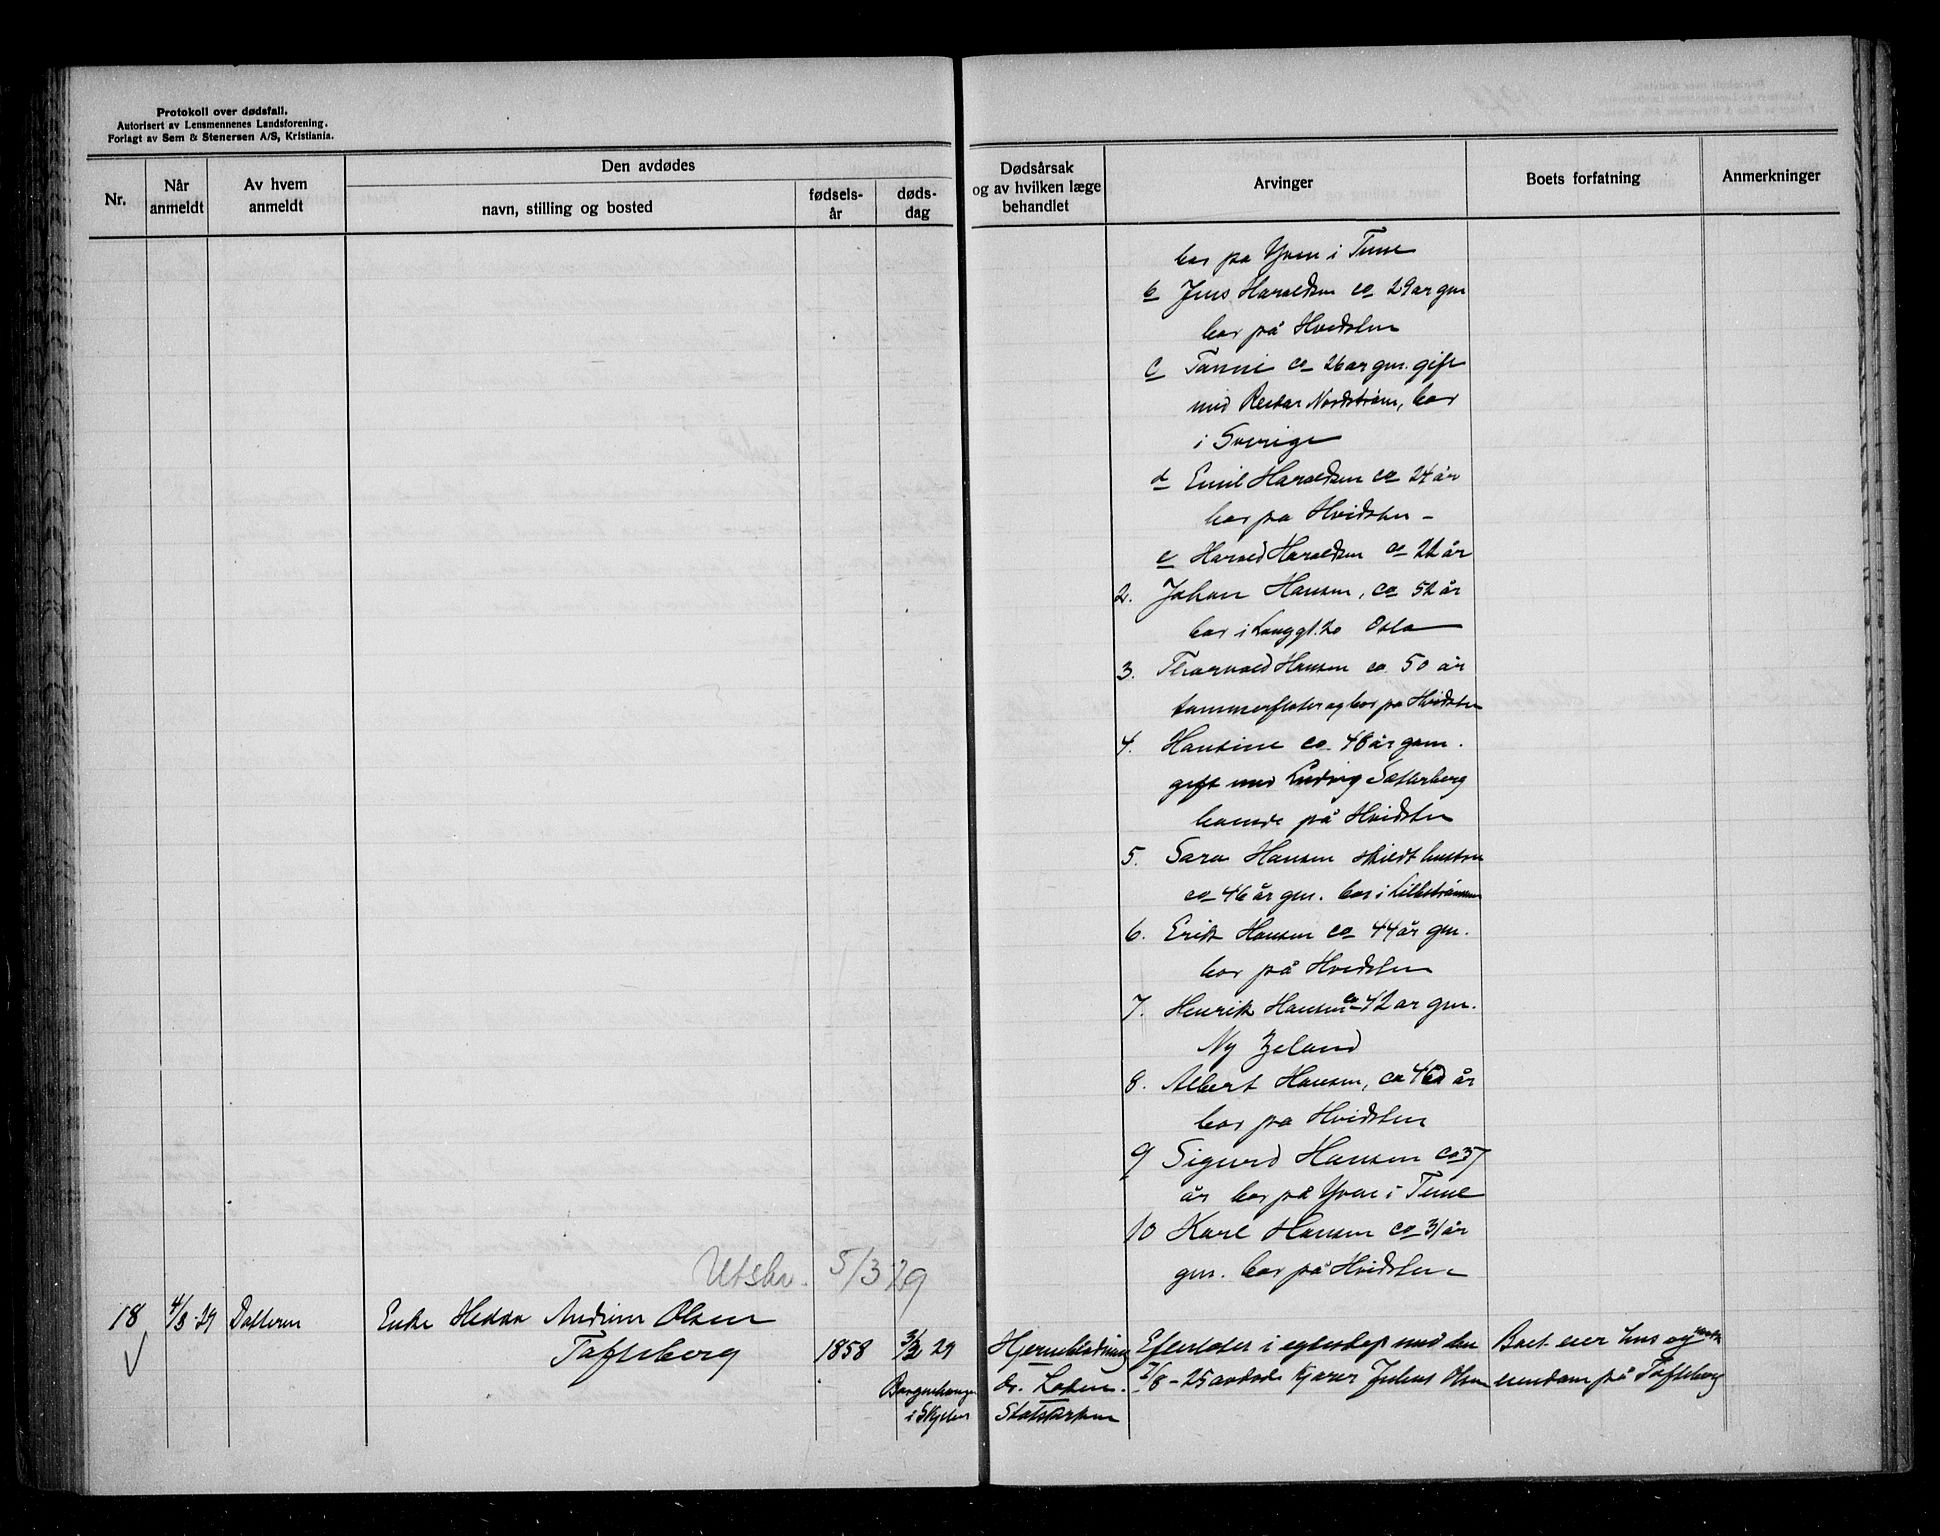 Protokoll over dødsfall.
Autorisert av Lensmennenes Landsforening.
Forlagt av Sem & Stenersen A/S, Kristiania.
Nr.
Når anmeldt
Av hvem anmeldt
Den avdødes
navn, stilling og bosted
fødselsår
dødsdag
Dødsårsak
og av hvilken læge
behandlet
Arvinger
Boets forfatning
Anmerkninger
bor på Yven i Tune
b Jens Haraldsen ca 29 år gm
bor på Hvidsten
c Fanni ca 26 år gm. gift
med Nordstrøm, bor
i Sverige
d Emil Haraldsen ca 24 år
bor på Hvidsten –
e Harald Haraldsen ca 22 år
2. Johan Hansen, ca 52 år
bor i Langgt. 20 Oslo
3. Thorvald Hansen ca 50 år
tømmerfløter og bor på Hvidsten
4. Hansine ca 48 år gam.
gift med Ludvig Sæterberg
boende på Hvidsten
5. Sara Hansen skildt hustru
ca 46 år gm. bor i Lillestrømmen
6. Erik Hansen ca 44 år gm.
bor på Hvidsten
7. Henrik Hansen ca 42 år gm.
Ny Zeland
8. Albert Hansen, ca 40 år
bor på Hvidsten
9 Sigurd Hansen ca 37
år bor på Yven i Tune
10 Karl Hansen ca 31 år
gm. bor på Hvidsten
Utskr. 5/3 29
18 4/3-29 Datteren Enke Hedda Andrine Olsen
Tafteberg 1858 3/3 29 Hjerneblødning Efterlater i egteskap med den Boet eier hus og
i Skjeberg dr. Loken. 7/8-25 avdøde Kjører Julius Olsen eiendom på Tafteberg